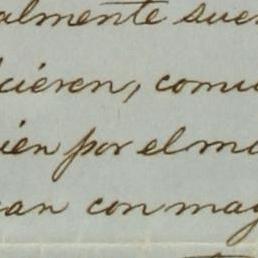 almente sue
cieren, comu
ien por el m
an con may